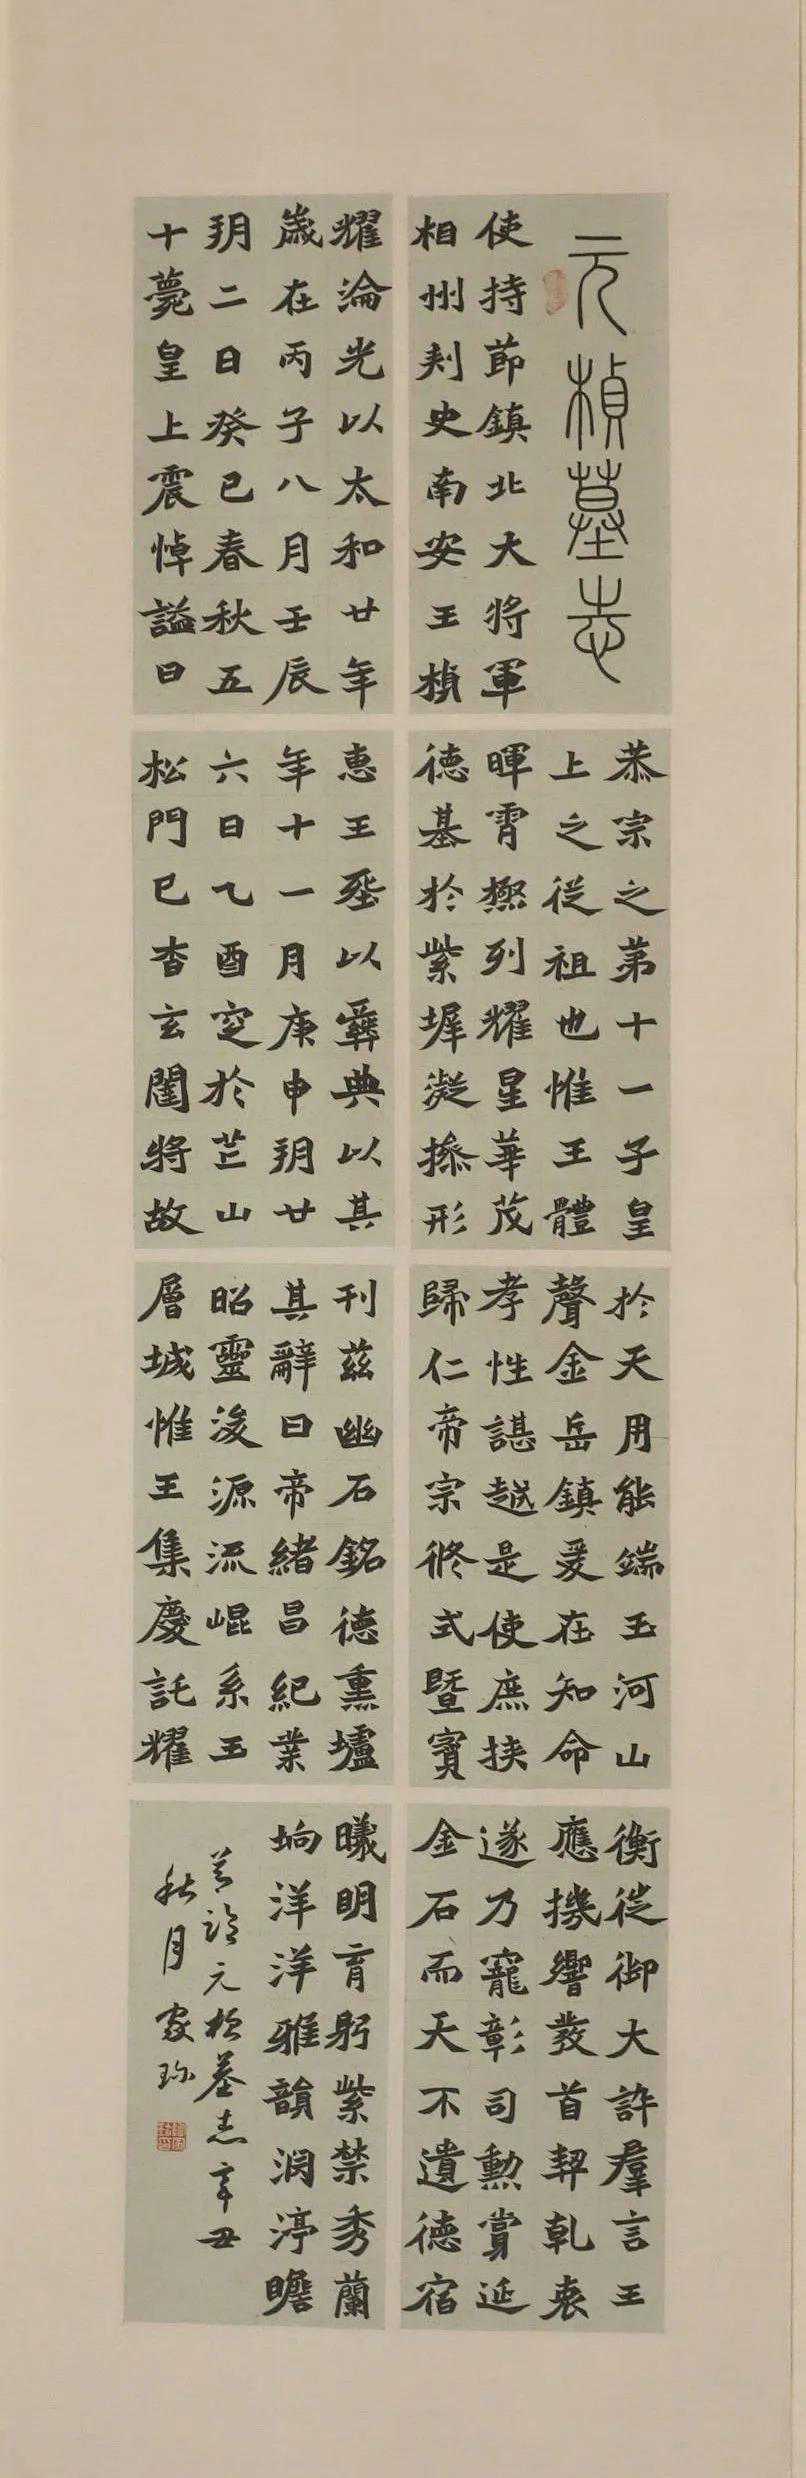 元楨墓志
使持節鎮北大將軍
相州刺史南安王楨
恭宗之第十一子皇
上之從祖也惟王體
暉霄極列耀星華茂
德基於紫墀凝操形
於天用能端玉河山
聲金岳鎮爰在知命
孝性諶越是使庶族
歸仁帝宗攸式暨寶
衡從御大許羣言王
應機響發首契乹衷
遂乃寵彰司勳賞延
金石而天不遺德宿
耀淪光以太和廿年
歲在丙子八月壬辰
朔二日癸巳春秋五
十薨皇上震悼謚曰
惠王葬以彝典以其
年十一月庚申朔廿
六日乙酉窆於芒山
松門已杳玄闥將故
刊茲幽石銘德熏壚
其辭曰帝緒昌紀業
昭靈浚源流崐系玉
層城惟王集慶託耀
曦明育躬紫禁秀蘭
坰洋洋雅韻淵渟瞻
節臨元楨墓志辛丑
秋月家珍